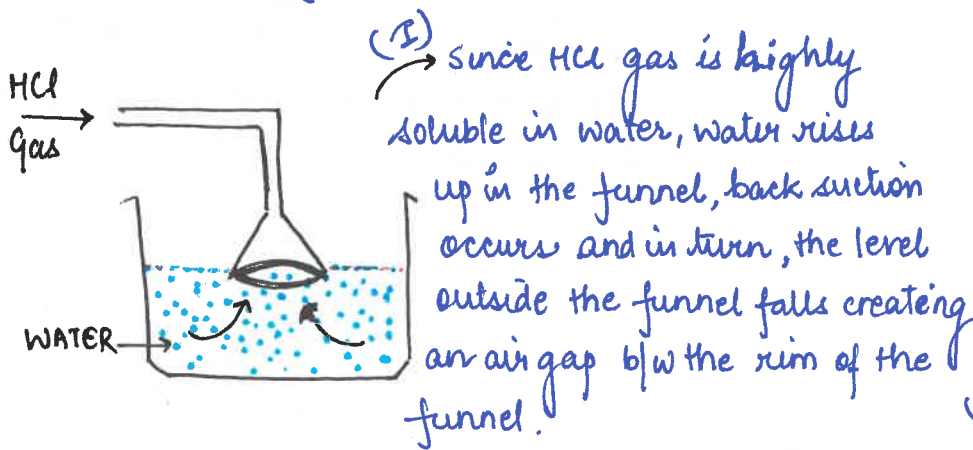 (I)
HCl
Gas
→ Since HCl gas is highly
soluble in water, water rises
up in the funnel, back suction
occurs and in turn, the level
outside the funnel falls createing
an air gap b/w the rim of the
funnel.
WATER